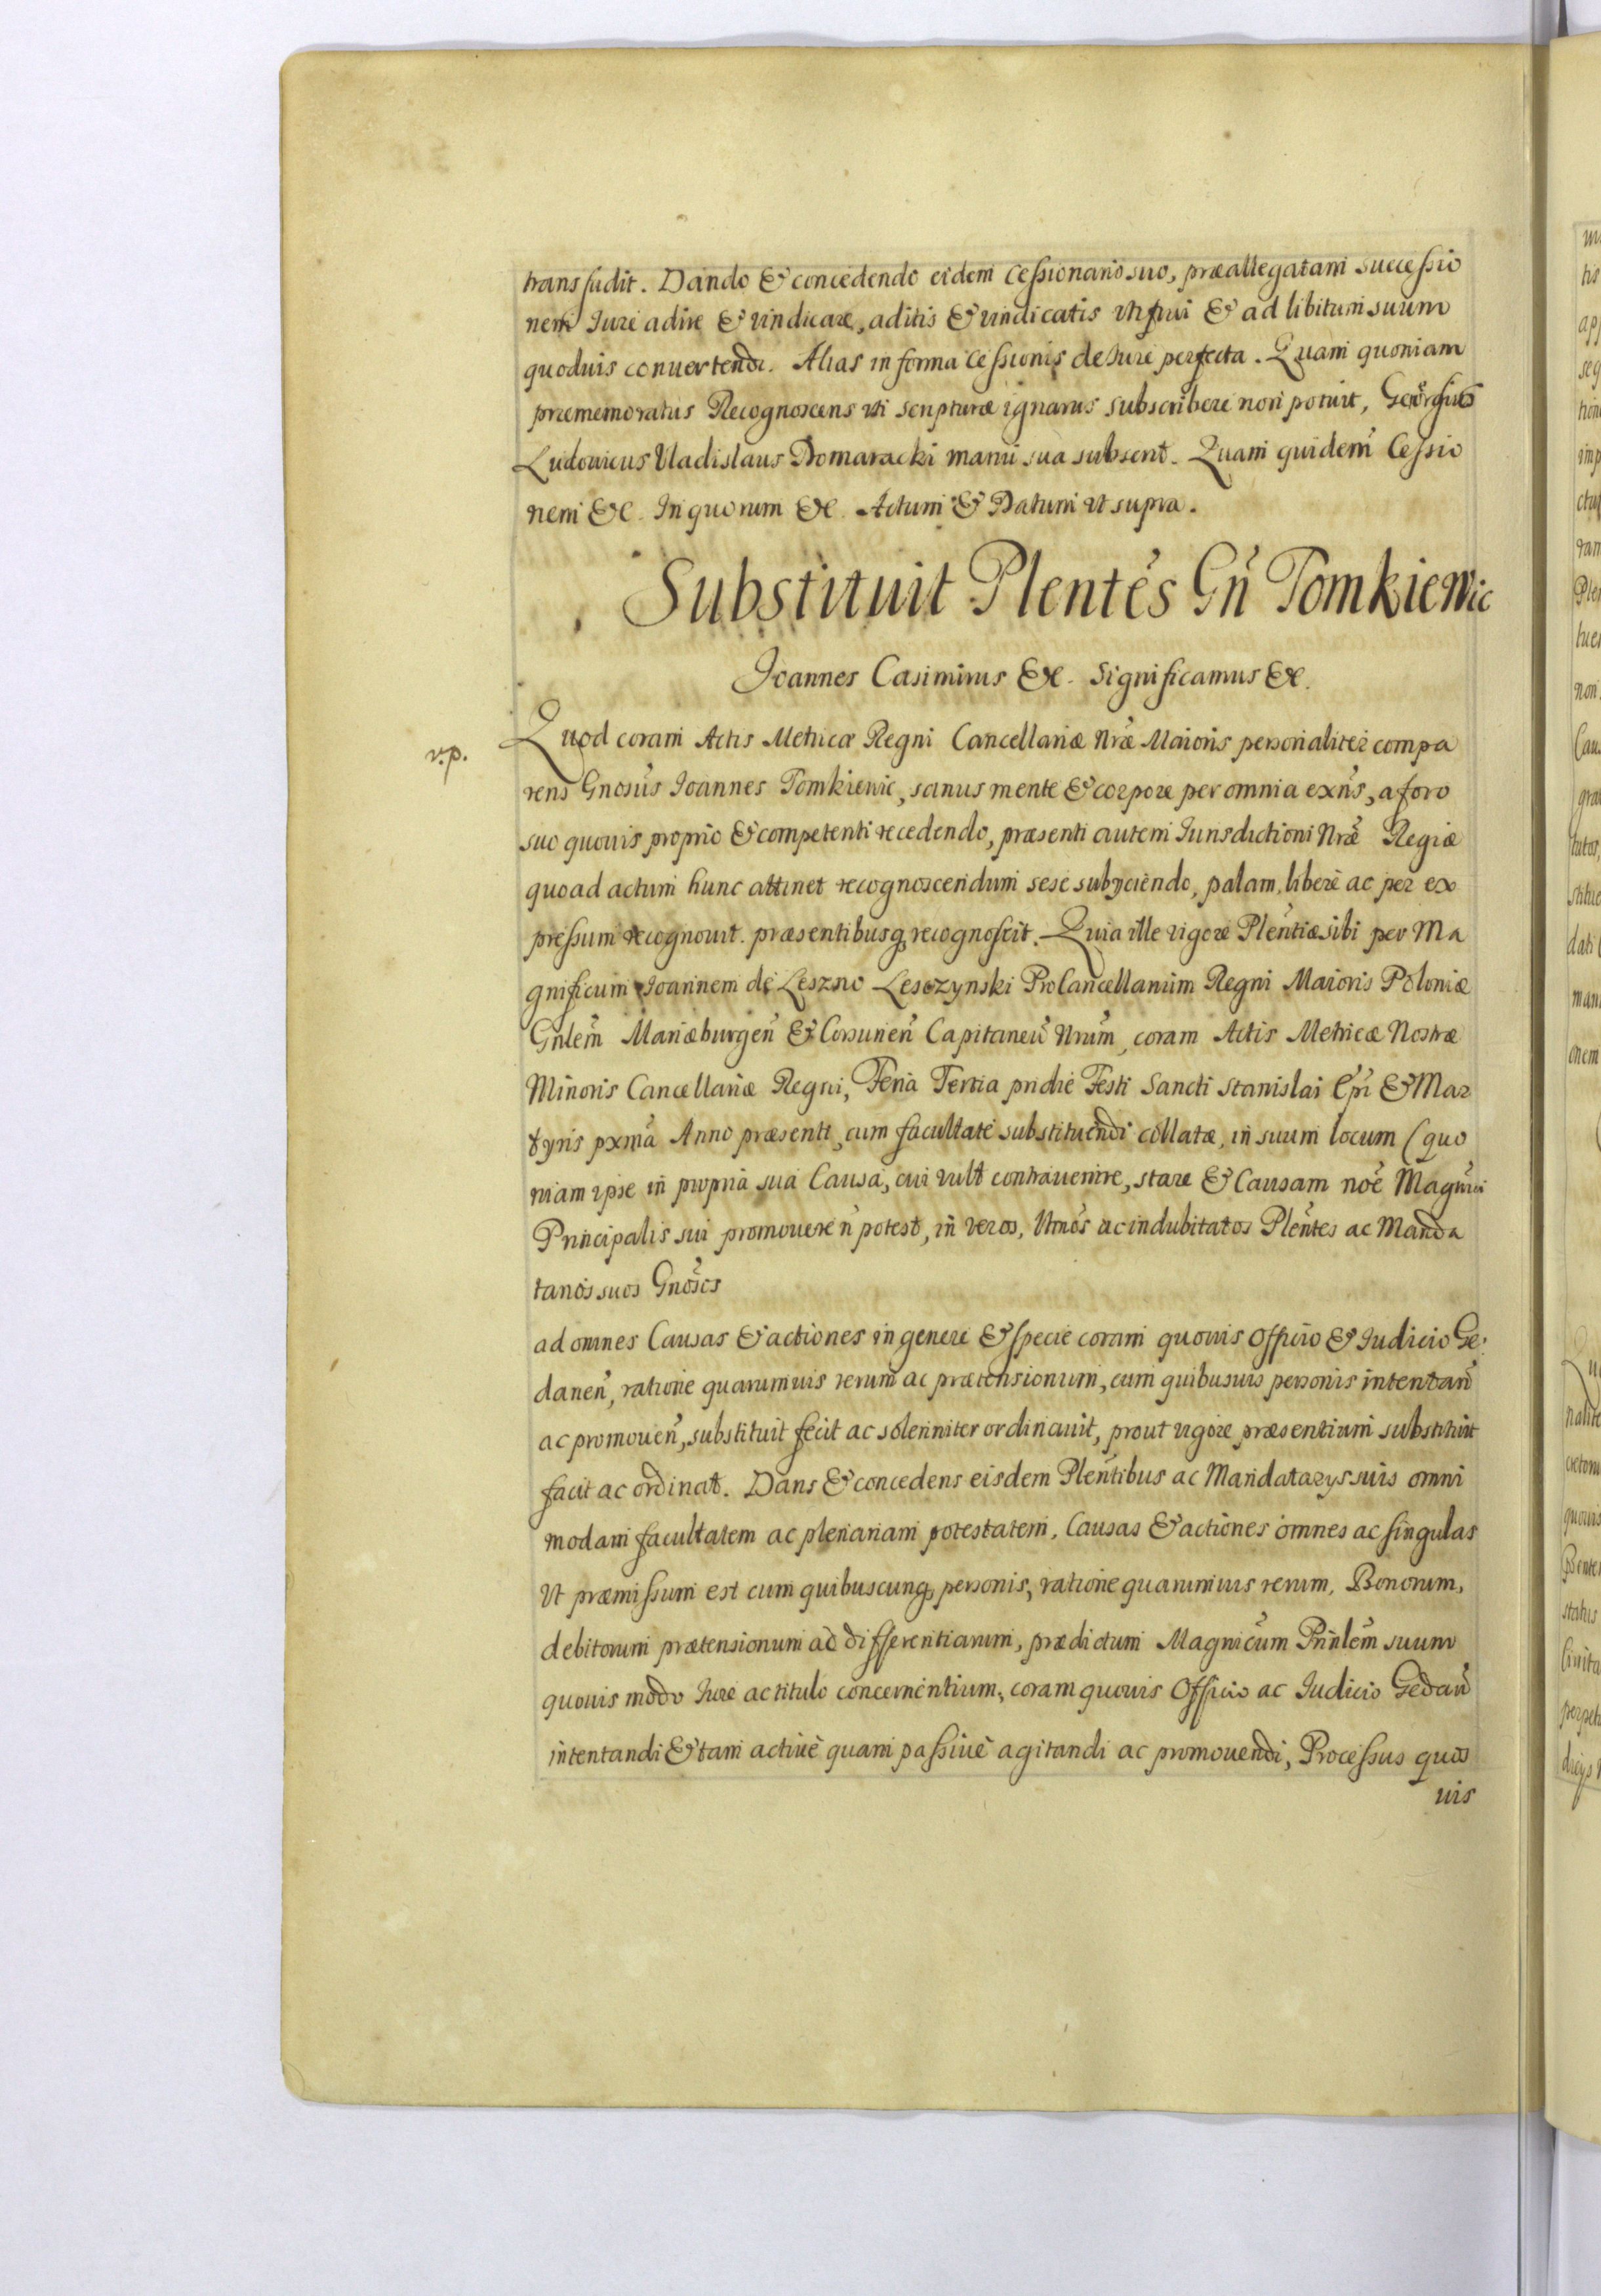 transfudit. Dando & concedendo eidem Cessionario suo, præallegatam successio
nem Jure adire & vindicare, aditis & vindicatis uti frui & ad libitum suum
quoduis conuertendi. Alias in forma Cessionis de Jure perfecta. Quam quoniam
præmemoratus Recognoscens uti scripturæ ignarus subscribere non potuit, Georgius
Ludouicus Vladislaus Domaracki manu sua subscrit. Quam quidem Cessio
nem &c. In quorum &c. Actum & Datum ut supra.
Substituit Plentes Gn̄ Tomkiewic
Joannes Casimirus &c. Significamus &c.
v.p.
Quod coram Actis Metricæ Regni Cancellariæ Nræ Maioris personaliter compa
rens Gnosus Joannes Tomkiewic, sanus mente & corpore per omnia exns, a foro
suo quouis proprio & competenti recedendo, præsenti autem Jurisdictioni Nræ Regiæ
quoad actum hunc attinet recognoscendum sese subijciendo, palam, liberè ac per ex
pressum recognouit. præsentibusq recognoscit. Quia ille vigore Plentiæ sibi per Ma
gnificum Joannem de Leszno Lesczynski ProCancellarium Regni Maioris Poloniæ
Gnlem Mariæburgen̄ & Corsunen̄ Capitaneū Nrum, coram Actis Metricæ Nostræ
Minoris Cancellariæ Regni, Feria Tertia pridie Festi Sancti Stanislai Epi & Mar
tyris pxmā Anno præsenti, cum facultate substituendi collatæ, in suum locum (quo
niam ipse in propria sua Causa, cui vult contrauenire, stare & Causam noē Magnici
Principalis sui promouere n̄ potest, in veros, ltmos ac indubitatos Plentes ac Manda
tarios suos Gnosos
ad omnes Causas & actiones in genere & specie coram quouis Officio & Judicio Ge
danen̄, ratione quarumuis rerum ac prætensionum, cum quibusuis personis intentan̄
ac promouen̄, substituit fecit ac solenniter ordinauit, prout vigore præsentium substituit
facit ac ordinat. Dans & concedens eisdem Plentibus ac Mandatarys suis omni
modam facultatem ac plenariam potestatem, Causas & actiones omnes ac singulas
Ut præmissum est cum quibuscunq personis, ratione quarumuis rerum, Bonorum,
debitorum prætensionum ac differentiarum, prædictum Magnicum Prinlem suum
quouis modo Jure ac titulo concernentium, coram quouis Officio ac Judicio Gedan̄
intentandi & tam actiuè quam passiuè agitandi ac promouendi, Processus quos
uis